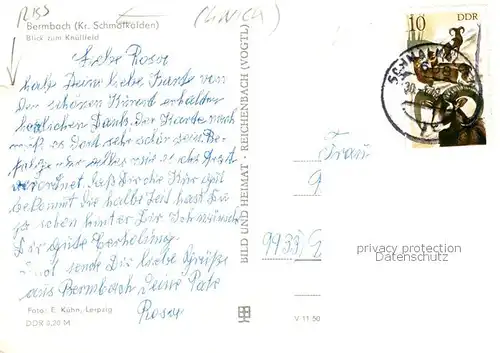 Bermbach (Kr. Schmalkalden)
Blick zum Knüllfeld
Liebe Rosa
habe Deine liebe Karte von
Der schönen erhalten
herzlichen Dank. Der Karte nach
muß es Dort sehr schön sein. Be-
folge nur alles wie es der Arzt
verordnet. Daß Dir die Kur gut
bekommt. Die halbe Zeit hast Du
ja schon hinter Dir. Ich wünsche
Dir gute Erholung
und sende Dir liebe Grüße
aus Bermbach Deine Pate
Rosa
Foto: E. Kühn, Leipzig
DDR 0,20 M
BILD UND HEIMAT · REICHENBACH (VOGTL)
V 11 50
10 DDR
Frau
9933
privacy protection
Datenschutz